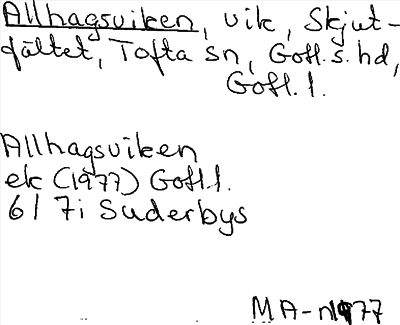 Allhagsviken, vik, Skjut-
fältet, Tofta sn, Gotl. s. hd,
Gotl. l.
Allhagsviken
ek (1977) Gotl. l.
6I 7i Suderbys
MA-n 1977